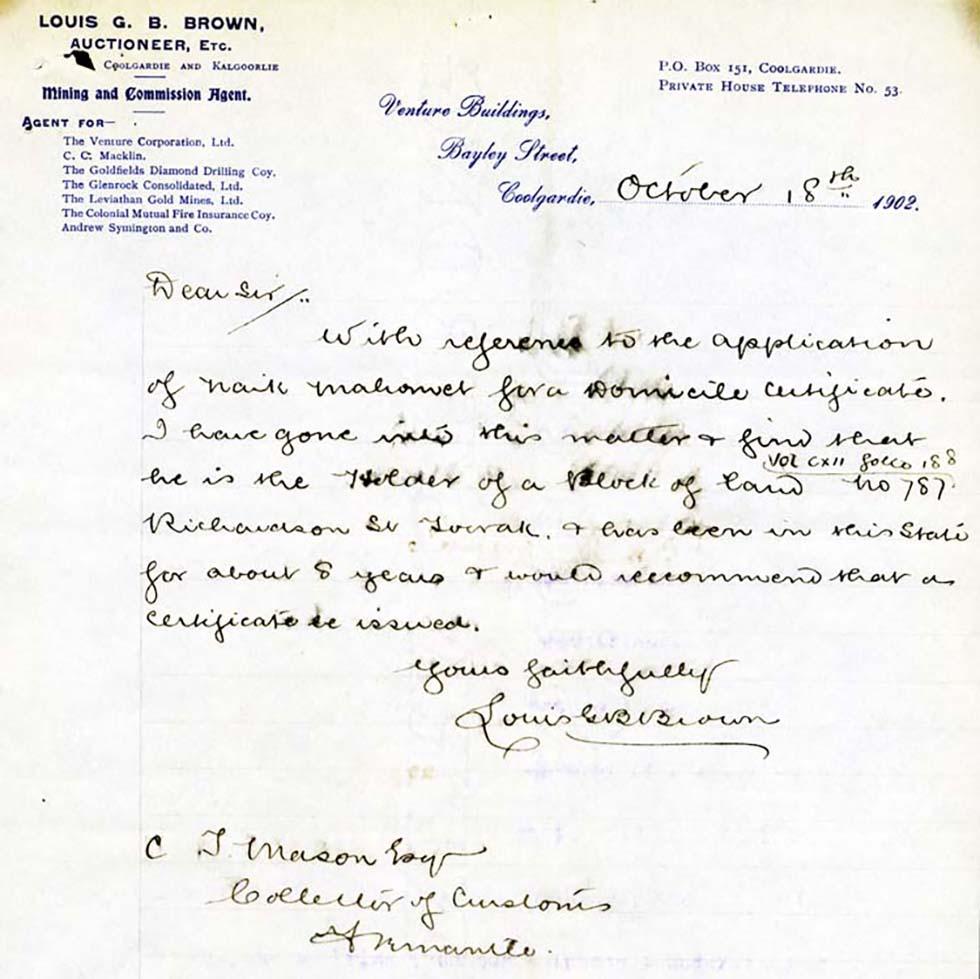 LOUIS G. B. BROWN,
AUCTIONEER, ETC.
COOLGARDIE AND KALGOORLIE
Mining and Commission Agent.
AGENT FOR—
The Venture Corporation, Ltd.
C. C. Macklin.
The Goldfields Diamond Drilling Coy.
The Glenrock Consolidated, Ltd.
The Leviathan Gold Mines, Ltd.
The Colonial Mutual Fire Insurance Coy.
Andrew Symington and Co.
P.O. BOX 151, COOLGARDIE.
PRIVATE HOUSE TELEPHONE NO. 53.
Venture Buildings,
Bayley Street,
Coolgardie, October 18th 1902.
Dear Sir/..
With reference to the application
of Naik Mahomet for a Domicile Certificate.
I have gone into this matter & find that
Vol CXII folio 188
he is the Holder of a Block of land No 787
Richardson St Toorak. & has been in this State
for about 8 years & would recommend that a
Certificate be issued.
Yours faithfully
Louis G B Brown
C T. Mason Esqr
Collector of Customs
Fremantle.